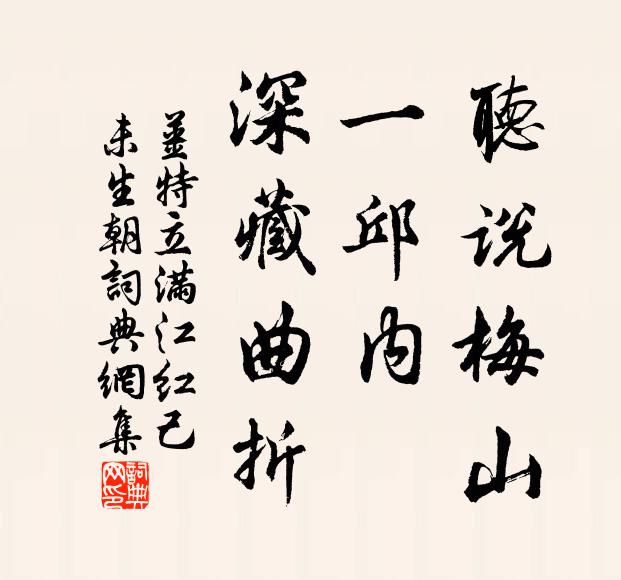 聽説梅山
一邱内
深藏曲折
姜特立滿江紅己
未生朝詞典網集
詞典
网印